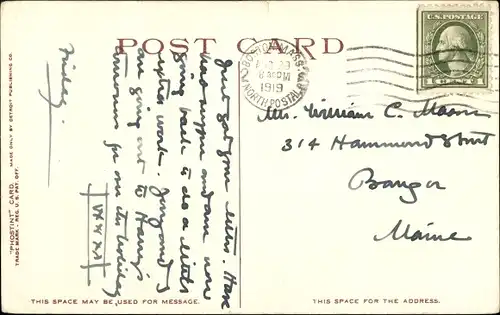 POST CARD
U.S. POSTAGE
1 CENT 1
BOSTON, MASS.
1919
NORTH POSTAL
Mr. William C. Mason
314 Hammond Street
Bangor
Maine
Just got your letter. Have
had supper and am now
going back to do a little
extra work. and I
are going out to Harry's
tomorrow for the holiday
Friday.
"PHOSTINT" CARD. MADE ONLY BY DETROIT PUBLISHING CO.
TRADE MARK - REG. U.S. PAT. OFF.
THIS SPACE MAY BE USED FOR MESSAGE.
THIS SPACE FOR THE ADDRESS.